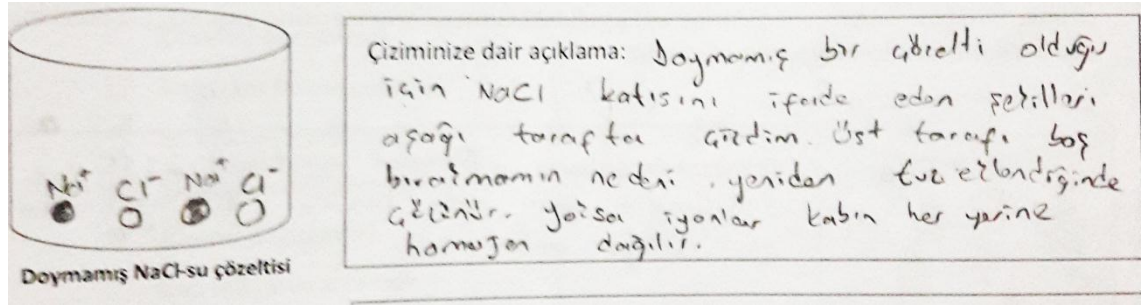 Na⁺ Cl⁻ Na⁺ Cl⁻
Doymamış NaCl-su çözeltisi
Çiziminize dair açıklama: Doymamış bir çözelti olduğu
için NaCl katısını ifade eden şekilleri
aşağı tarafta çizdim. Üst tarafı boş
bırakmamın nedeni, yeniden tuz eklendiğinde
çözünür. Yoksa iyonlar kabın her yerine
homojen dağılır.